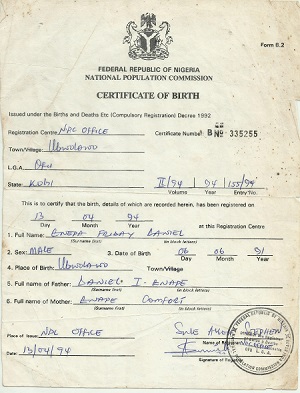 Form B.2
FEDERAL REPUBLIC OF NIGERIA
NATIONAL POPULATION COMMISSION
CERTIFICATE OF BIRTH
Issued under the Births and Deaths Etc (Compulsory Registration) Decree 1992
Registration Centre: NPC OFFICE Certificate Number: B No 335255
Town/Village: Ubwolawo
L.G.A OFU
State: KOGI II/94 94 155/94
Volume Year Entry No.
This is to certify that the birth, details of which are recorded herein, has been registered on
13 04 94 at this Registration Centre
Day Month Year
1. Full Name: ENEPE FRIDAY DANIEL
(Surname first) (in block letters)
2. Sex: MALE 3. Date of Birth 06 06 91
Day Month Year
4. Place of Birth: Ubwolawo Town/Village
5. Full name of Father: DANIEL I. ENAPE
(Surname first) (in block letters)
6. Full name of Mother: ENAPE COMFORT
(Surname first) (in block letters)
Place of Issue: NPC OFFICE STEPHEN
Name of Registrar
Date: 13/04/94
Signature of Registrar